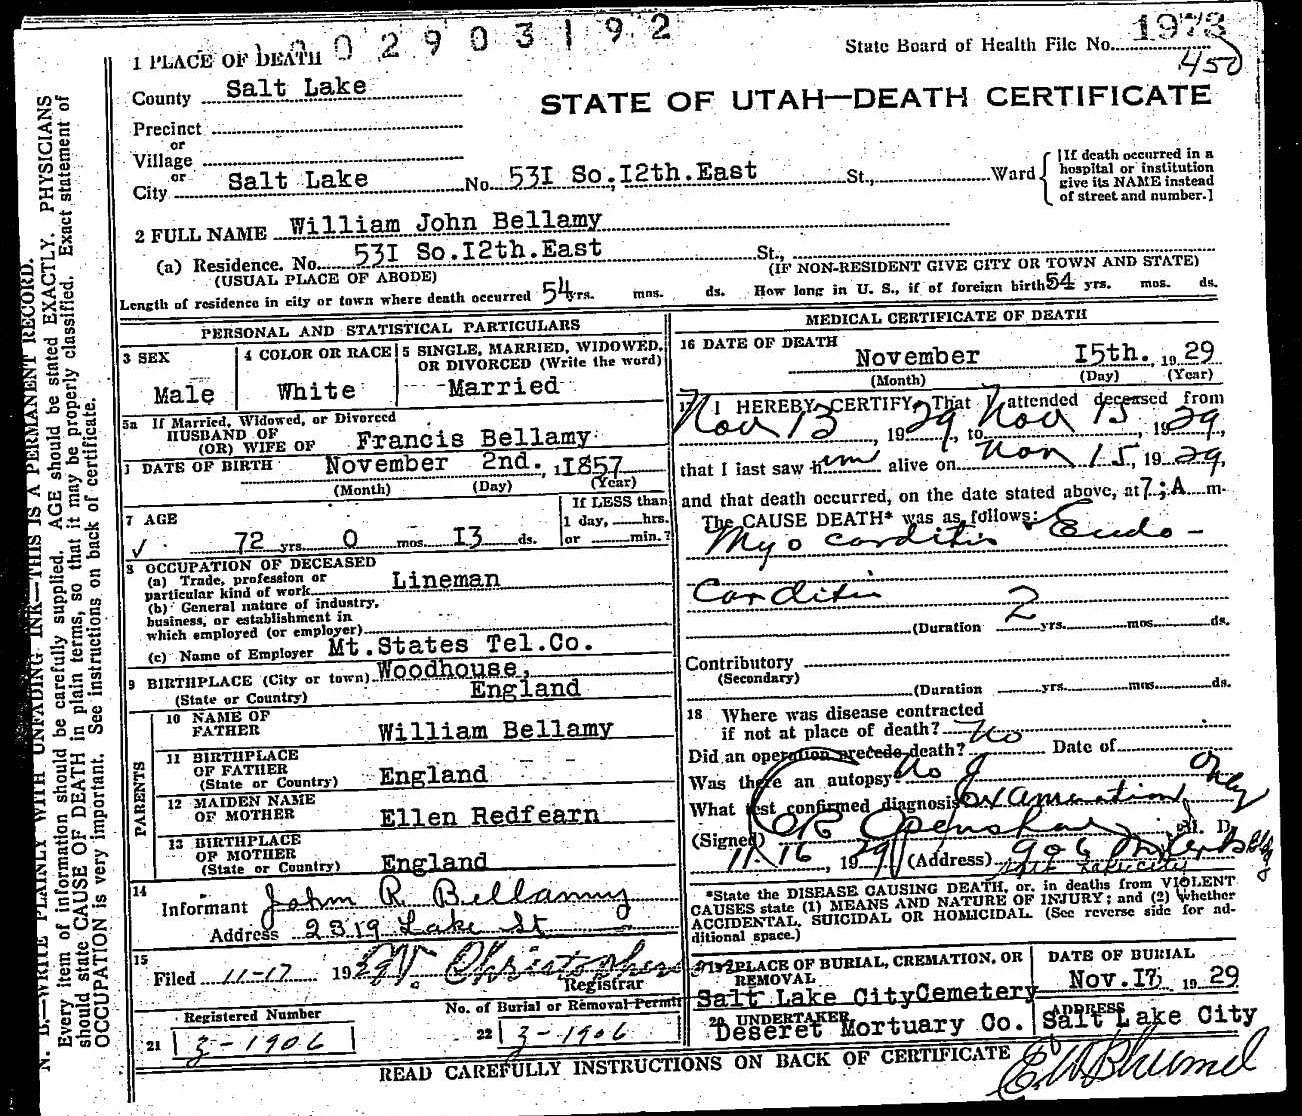 0 0 2 9 0 3 1 9 2
State Board of Health File No. 1973
450
1 PLACE OF DEATH
County Salt Lake
STATE OF UTAH—DEATH CERTIFICATE
Precinct
or
Village
or
City Salt Lake No. 53I So.I2th.East St., Ward
[If death occurred in a
hospital or institution
give its NAME instead
of street and number.]
2 FULL NAME William John Bellamy
(a) Residence. No. 53I So.I2th.East St.,
(USUAL PLACE OF ABODE) (IF NON-RESIDENT GIVE CITY OR TOWN AND STATE)
Length of residence in city or town where death occurred 54 yrs. mos. ds. How long in U. S., if of foreign birth 54 yrs. mos. ds.
PERSONAL AND STATISTICAL PARTICULARS
3 SEX
Male
4 COLOR OR RACE
White
5 SINGLE, MARRIED, WIDOWED,
OR DIVORCED (Write the word)
Married
5a If Married, Widowed, or Divorced
HUSBAND OF
(OR) WIFE OF Francis Bellamy
DATE OF BIRTH November 2nd. I857
(Month) (Day) (Year)
7 AGE
72 yrs. 0 mos. I3 ds.
If LESS than
1 day, hrs.
or min.?
8 OCCUPATION OF DECEASED
(a) Trade, profession or
particular kind of work Lineman
(b) General nature of industry,
business, or establishment in
which employed (or employer)
(c) Name of Employer Mt.States Tel.Co.
9 BIRTHPLACE (City or town) Woodhouse,
(State or Country) England
PARENTS
10 NAME OF
FATHER William Bellamy
11 BIRTHPLACE
OF FATHER
(State or Country) England
12 MAIDEN NAME
OF MOTHER Ellen Redfearn
13 BIRTHPLACE
OF MOTHER
(State or Country) England
14
Informant John R Bellamy
Address 2319 Lake St
15
Filed 11-17 1929
Registrar
Registered Number
21 3-1906
No. of Burial or Removal Permit
22 3-1906
MEDICAL CERTIFICATE OF DEATH
16 DATE OF DEATH
November I5th. 1929
(Month) (Day) (Year)
17 I HEREBY CERTIFY, That I attended deceased from
Nov 13, 1929, to Nov 15, 1929,
that I last saw him alive on Nov 15, 1929,
and that death occurred, on the date stated above, at 7 A m.
The CAUSE DEATH* was as follows:
Myocarditis Endo-
Carditis
(Duration 2 yrs. mos. ds.
Contributory
(Secondary)
(Duration yrs. mos. ds.
18 Where was disease contracted
if not at place of death? No
Did an operation precede death? Date of
Was there an autopsy? No
What test confirmed diagnosis Examination Only
(Signed) Openshaw, M. D.
11-16, 1929 (Address) 906
Salt Lake City
*State the DISEASE CAUSING DEATH, or, in deaths from VIOLENT
CAUSES state (1) MEANS AND NATURE OF INJURY; and (2) whether
ACCIDENTAL, SUICIDAL OR HOMICIDAL. (See reverse side for ad-
ditional space.)
19 PLACE OF BURIAL, CREMATION, OR
REMOVAL
Salt Lake CityCemetery
DATE OF BURIAL
Nov. 1929
20 UNDERTAKER
Deseret Mortuary Co.
ADDRESS
Salt Lake City
READ CAREFULLY INSTRUCTIONS ON BACK OF CERTIFICATE
N. B.—WRITE PLAINLY WITH UNFADING INK—THIS IS A PERMANENT RECORD.
Every item of information should be carefully supplied. AGE should be stated EXACTLY. PHYSICIANS
should state CAUSE OF DEATH in plain terms, so that it may be properly classified. Exact statement of
OCCUPATION is very important. See instructions on back of certificate.